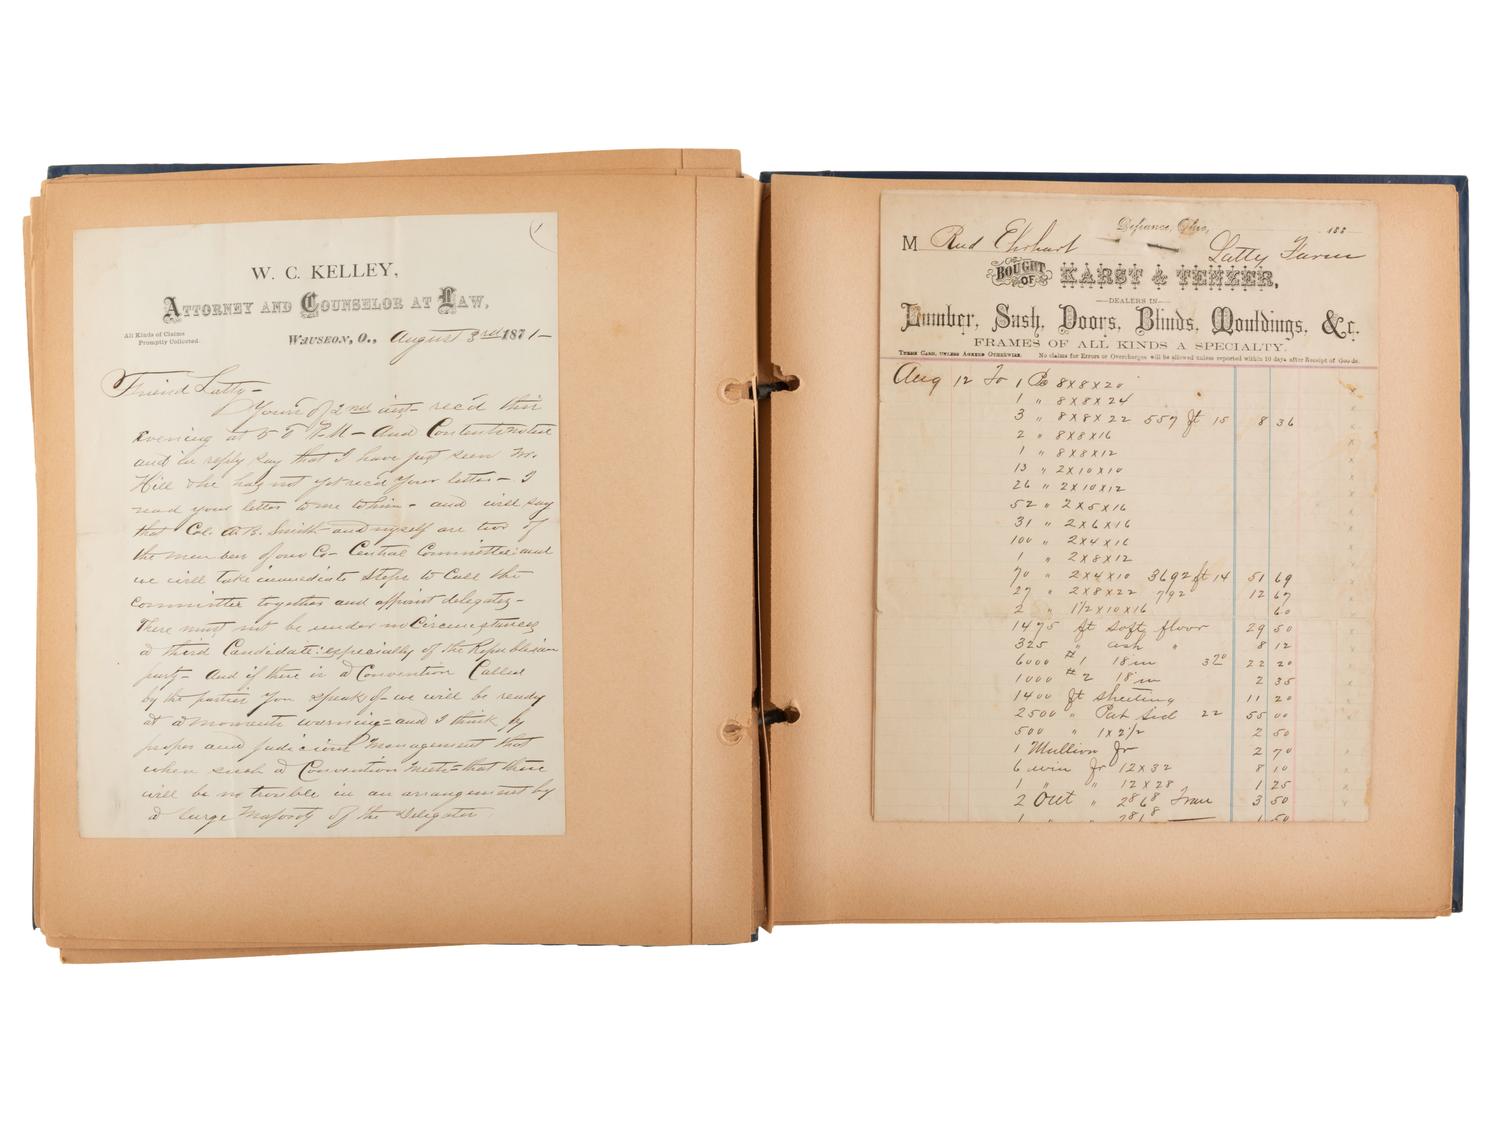 W. C. KELLEY,
ATTORNEY AND COUNSELOR AT LAW,
All Kinds of Claims
Promptly Collected.
WAUSEON, O., August 3rd 1871-
Friend Latty-
Yours of 2nd inst- rec'd this
evening at P.M- and Contents noted
and in reply say that I have just seen Mr.
Hill & he has not yet rec'd your letter- I
read your letter to me to him- and will say
that Col. A.B. Smith and myself are two of
the members of our Co- Central Committee: and
we will take immediate steps to Call the
Committee together and appoint delegates-
There must not be under no Circumstances
a third Candidate: especially of the Republican
party- And if there is a Convention Called
by the parties you speak of- we will be ready
at a moments warning- and I think by
proper and judicious management that
when such a Convention meets- that there
will be no trouble in an arrangement by
a large Majority of the delegates
Defiance, Ohio, 188
M Rud Ehrhart - Latty Farm
BOUGHT OF KARST & TENZER,
DEALERS IN
Lumber, Sash, Doors, Blinds, Mouldings, &c.
FRAMES OF ALL KINDS A SPECIALTY.
TERMS CASH, UNLESS AGREED OTHERWISE. No claims for Errors or Overcharges will be allowed unless reported within 10 days after Receipt of Goods.
Aug 12 To 1 Pc 8x8x20
1 " 8x8x24
3 " 8x8x22 557 ft 15 8 36
2 " 8x8x16
1 " 8x8x12
13 " 2x10x10
26 " 2x10x12
52 " 2x5x16
31 " 2x6x16
100 " 2x4x16
1 " 2x8x12
70 " 2x4x10 3692 ft 14 51 69
27 " 2x8x22 792 12 67
2 " 1½x10x16 60
1475 ft soft floor 29 50
325 " ash " 8 12
6000 #1 18 in 3 70 22 20
1000 #2 18 in 2 35
1400 ft sheeting 11 20
2500 " Pat Sid 22 55 00
500 " 1x2½ 2 50
1 Mullion fr 2 70
6 win fr 12x32 8 10
1 " " 12x28 1 25
2 Out " 2 8 6 8 3 50
1 " " 1 50